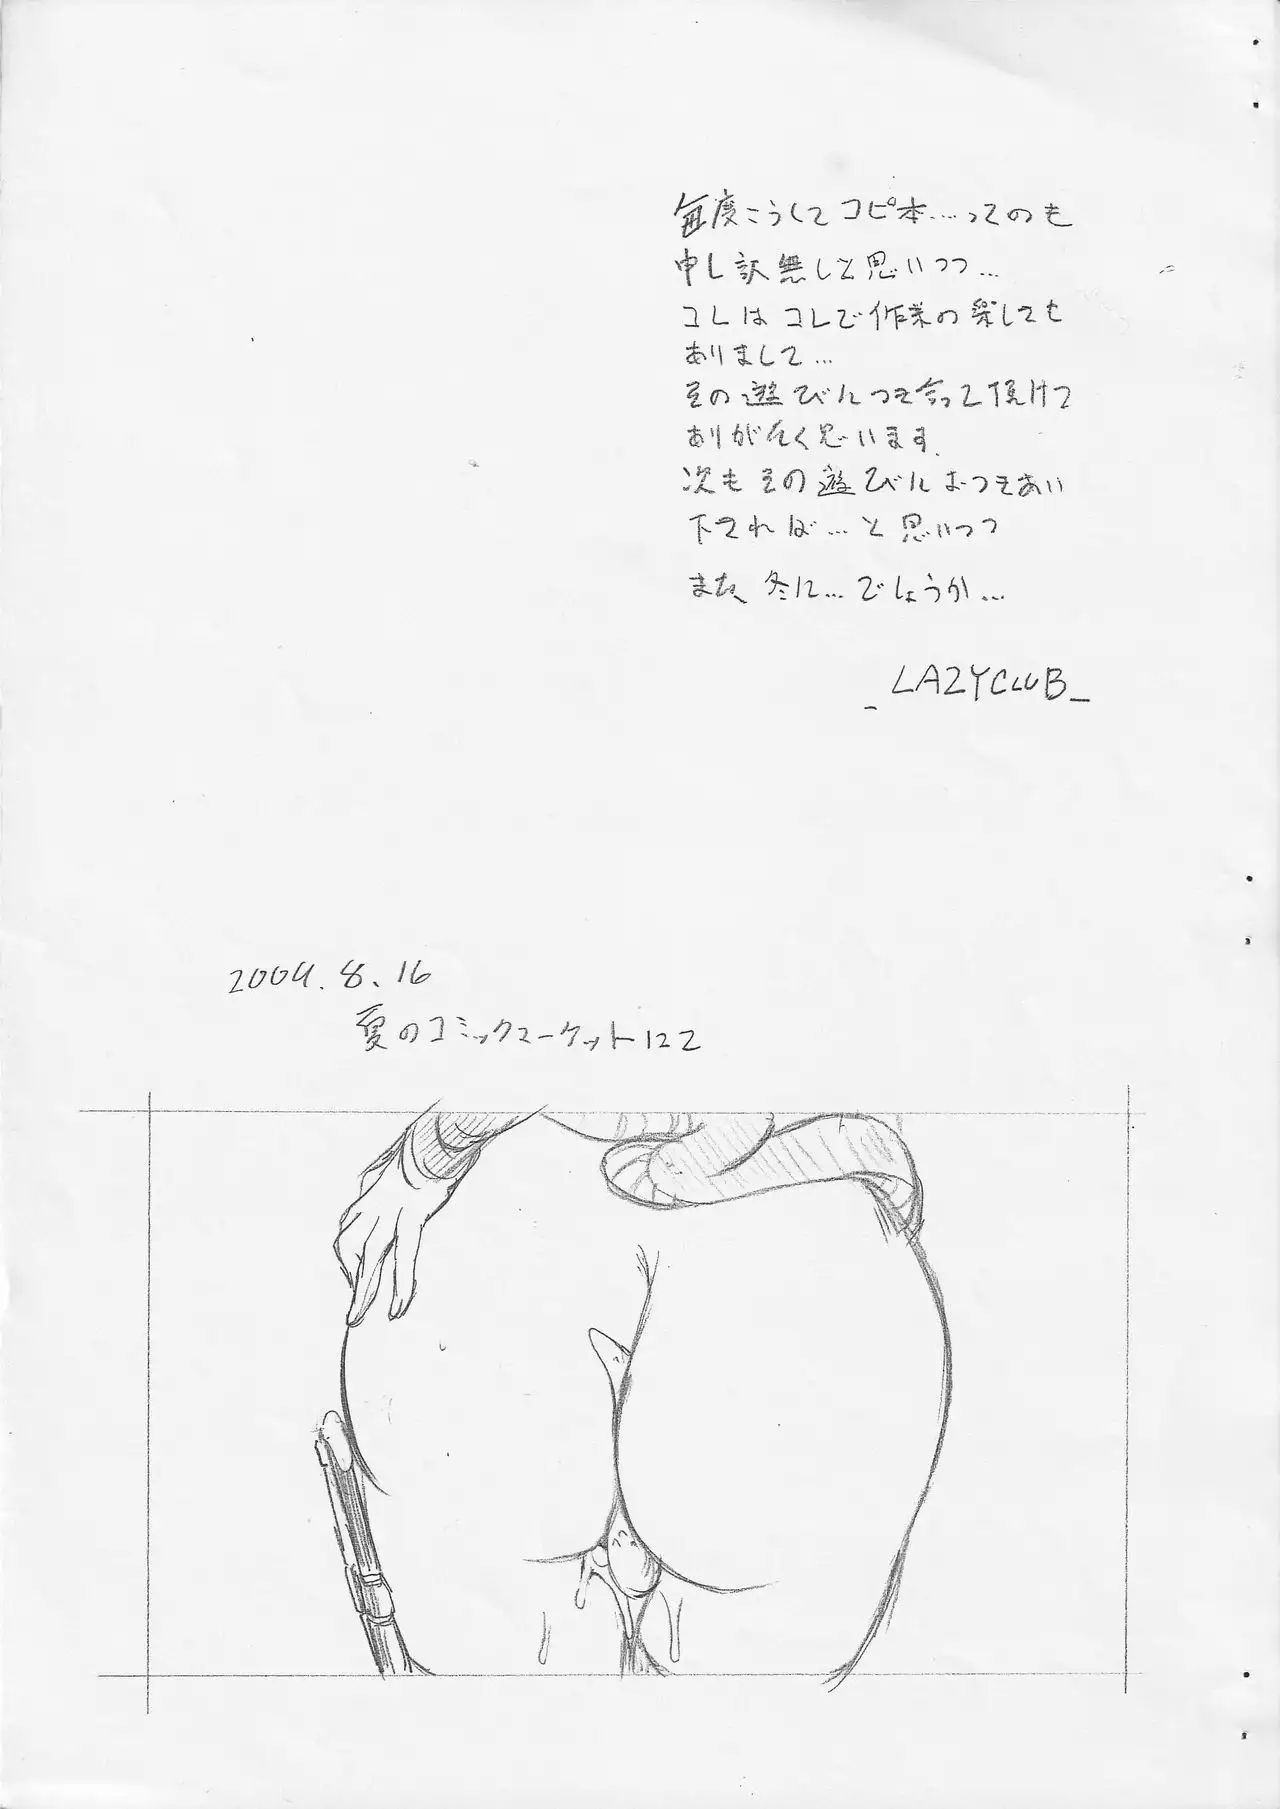 毎度こうしてコピ本....ってのも
申し訳無しと思いつつ...
コレはコレで作業の楽しても
ありまして...
その遊びにつき合って頂けて
ありがたく思います.
次もその遊びにおつきあい
下されば...と思いつつ
また、冬に...でしょうか...
_LAZYCLUB_
2009.8.16
夏のコミックマーケットにて